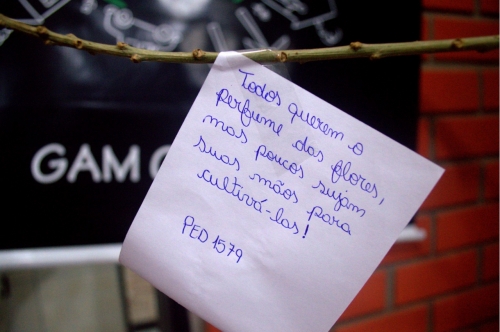 Todos querem o
perfume das flores,
mas poucos sujam
suas mãos para
cultivá-las!
PED 1579
GAM